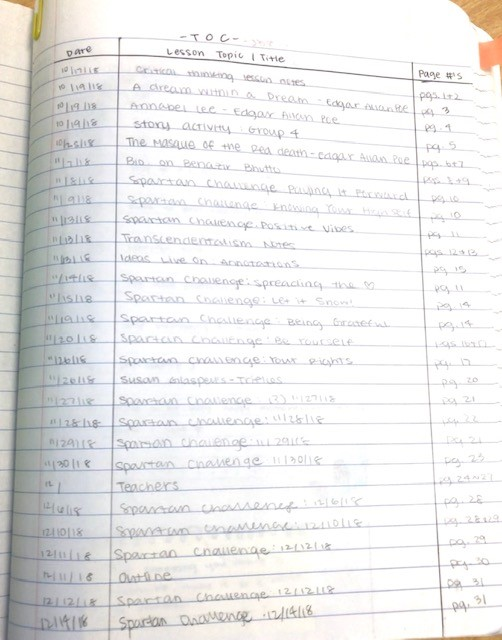 - TOC -
Date Lesson Topic | Title Page #'s
10/17/18 Critical thinking lesson notes pgs. 1+2
10/19/18 A dream within a Dream - Edgar Allan Poe pg. 3
10/19/18 Annabel Lee - Edgar Allan Poe pg. 4
10/19/18 Story activity - Group 4 pg. 5
10/25/18 The Masque of the Red death - Edgar Allan Poe pgs. 6+7
11/7/18 Bio on Benazir Bhutto pgs. 8+9
11/8/18 Spartan Challenge Paying It Forward pg. 10
11/9/18 Spartan Challenge Knowing Your pg. 10
11/13/18 Spartan Challenge: Positive Vibes pg. 11
11/13/18 Transcendentalism Notes pgs. 12+13
11/13/18 Ideas Live On - Annotations pg. 15
11/14/18 Spartan Challenge: Spreading the ♡ pg. 11
11/15/18 Spartan Challenge: Let it Snow! pg. 14
11/19/18 Spartan Challenge: Being Grateful pg. 14
11/20/18 Spartan Challenge: Be Yourself pgs
11/26/18 Spartan Challenge: Your Rights pg. 17
11/26/18 Susan Glaspells - Trifles pg. 20
11/27/18 Spartan Challenge: 11/27/18 pg. 21
11/28/18 Spartan Challenge: 11/28/18 pg. 22
11/29/18 Spartan Challenge: 11/29/18 pg. 21
11/30/18 Spartan Challenge 11/30/18 pg. 23
12/ Teachers pg.
12/6/18 Spartan Challenge: 12/6/18 pg. 28
12/10/18 Spartan Challenge: 12/10/18 pg.
12/11/18 Spartan Challenge: 12/12/18 pg. 29
12/11/18 Outline pg. 30
12/12/18 Spartan Challenge 12/12/18 pg. 31
12/14/18 Spartan Challenge - 12/14/18 pg. 31